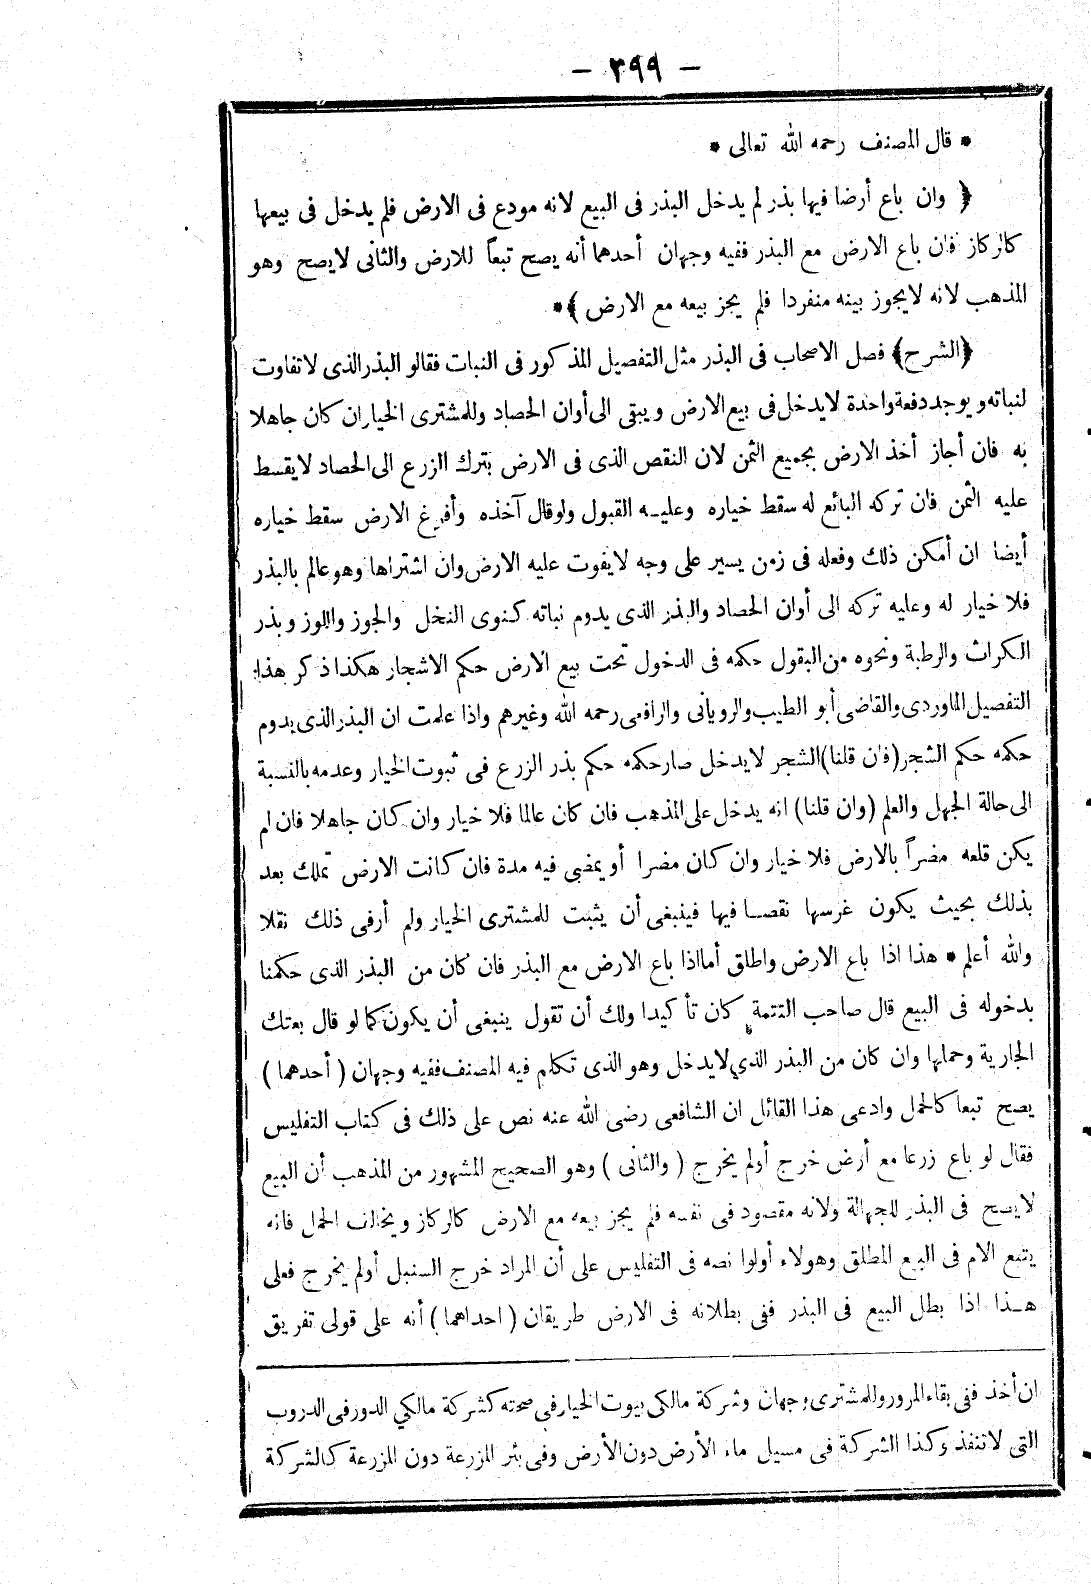 — ٣٩٩ —
* قال المصنف رحمه الله تعالى *
﴿ وان باع أرضا فيها بذر لم يدخل البذر فى البيع لانه مودع فى الارض فلم يدخل فى بيعها
كالركاز فان باع الارض مع البذر ففيه وجهان أحدهما أنه يصح تبعاً للارض والثانى لايصح وهو
المذهب لانه لايجوز بيعه منفردا فلم يجز بيعه مع الارض ﴾*
﴿الشرح﴾ فصل الاصحاب فى البذر مثل التفصيل المذكور فى النبات فقالو البذر الذى لاتفاوت
لنباته ويوجد دفعة واحدة لايدخل فى بيع الارض ويبقى الى أوان الحصاد وللمشترى الخيار ان كان جاهلا
به فان أجاز أخذ الارض بجميع الثمن لان النقص الذى فى الارض بترك الزرع الى الحصاد لايقسط
عليه الثمن فان تركه البائع له سقط خياره وعليه القبول ولو قال آخذه وأفرغ الارض سقط خياره
أيضا ان أمكن ذلك وفعله فى زمن يسير على وجه لايفوت عليه الارض وان اشتراها وهو عالم بالبذر
فلا خيار له وعليه تركه الى أوان الحصاد والبذر الذى يدوم نباته كنوى النخل والجوز واللوز وبذر
الكراث والرطبة ونحوه من البقول حكمه فى الدخول تحت بيع الارض حكم الاشجار هكذا ذكر هذا
التفصيل الماوردى والقاضى أبو الطيب والرويانى والرافعى رحمه الله وغيرهم واذا علمت ان البذر الذى يدوم
حكمه حكم الشجر (فان قلنا) الشجر لايدخل صار حكمه حكم بذر الزرع فى ثبوت الخيار وعدمه بالنسبة
الى حالة الجهل والعلم (وان قلنا) انه يدخل على المذهب فان كان عالما فلا خيار وان كان جاهلا فان لم
يكن قلعه مضراً بالارض فلا خيار وان كان مضرا أو يمضى فيه مدة فان كانت الارض تملك بعد
بذلك بحيث يكون غرسها نقصا فيها فينبغى أن يثبت للمشترى الخيار ولم أر فى ذلك نقلا
والله أعلم * هذا اذا باع الارض واطلق أما اذا باع الارض مع البذر فان كان من البذر الذى حكمنا
بدخوله فى البيع قال صاحب التتمة كان تأكيدا ولك أن تقول ينبغى أن يكون كما لو قال بعتك
الجارية وحملها وان كان من البذر الذي لايدخل وهو الذى تكلم فيه المصنف ففيه وجهان ( أحدهما )
يصح تبعا كالحمل وادعى هذا القائل ان الشافعى رضى الله عنه نص على ذلك فى كتاب التفليس
فقال لو باع زرعا مع أرض خرج أولم يخرج ( والثانى ) وهو الصحيح المشهور من المذهب أن البيع
لايصح فى البذر للجهالة ولانه مقصود فى نفسه فلم يجز بيعه مع الارض كالركاز ويخالف الحمل فانه
يتبع الام فى البيع المطلق وهولاء أولوا نصه فى التفليس على أن المراد خرج السنبل أولم يخرج فعلى
هذا اذا بطل البيع فى البذر ففى بطلانه فى الارض طريقان ( احداهما ) أنه على قولى تفريق
ان أخذ ففى بقاء المرور وللمشترى وجهان وشركة مالكى بيوت الخيار فى صحته كشركة مالكي الدور فى الدروب
التى لاتنفذ وكذا الشركة فى مسيل ماء الأرض دون الأرض وفى بئر المزرعة دون المزرعة كالشركة